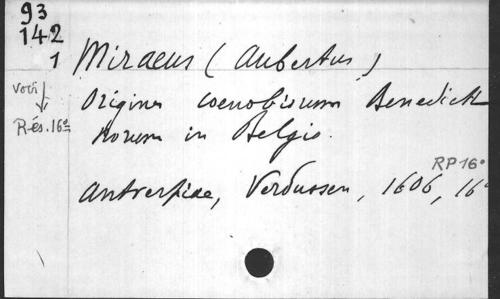 93
142
1
Miraeus (Aubertus)
voir
Origines coenobiorum Benedicti
Rés. 16º
norum in Belgio.
RP 16º
Antverpiae, Verdussen, 1606, 16º